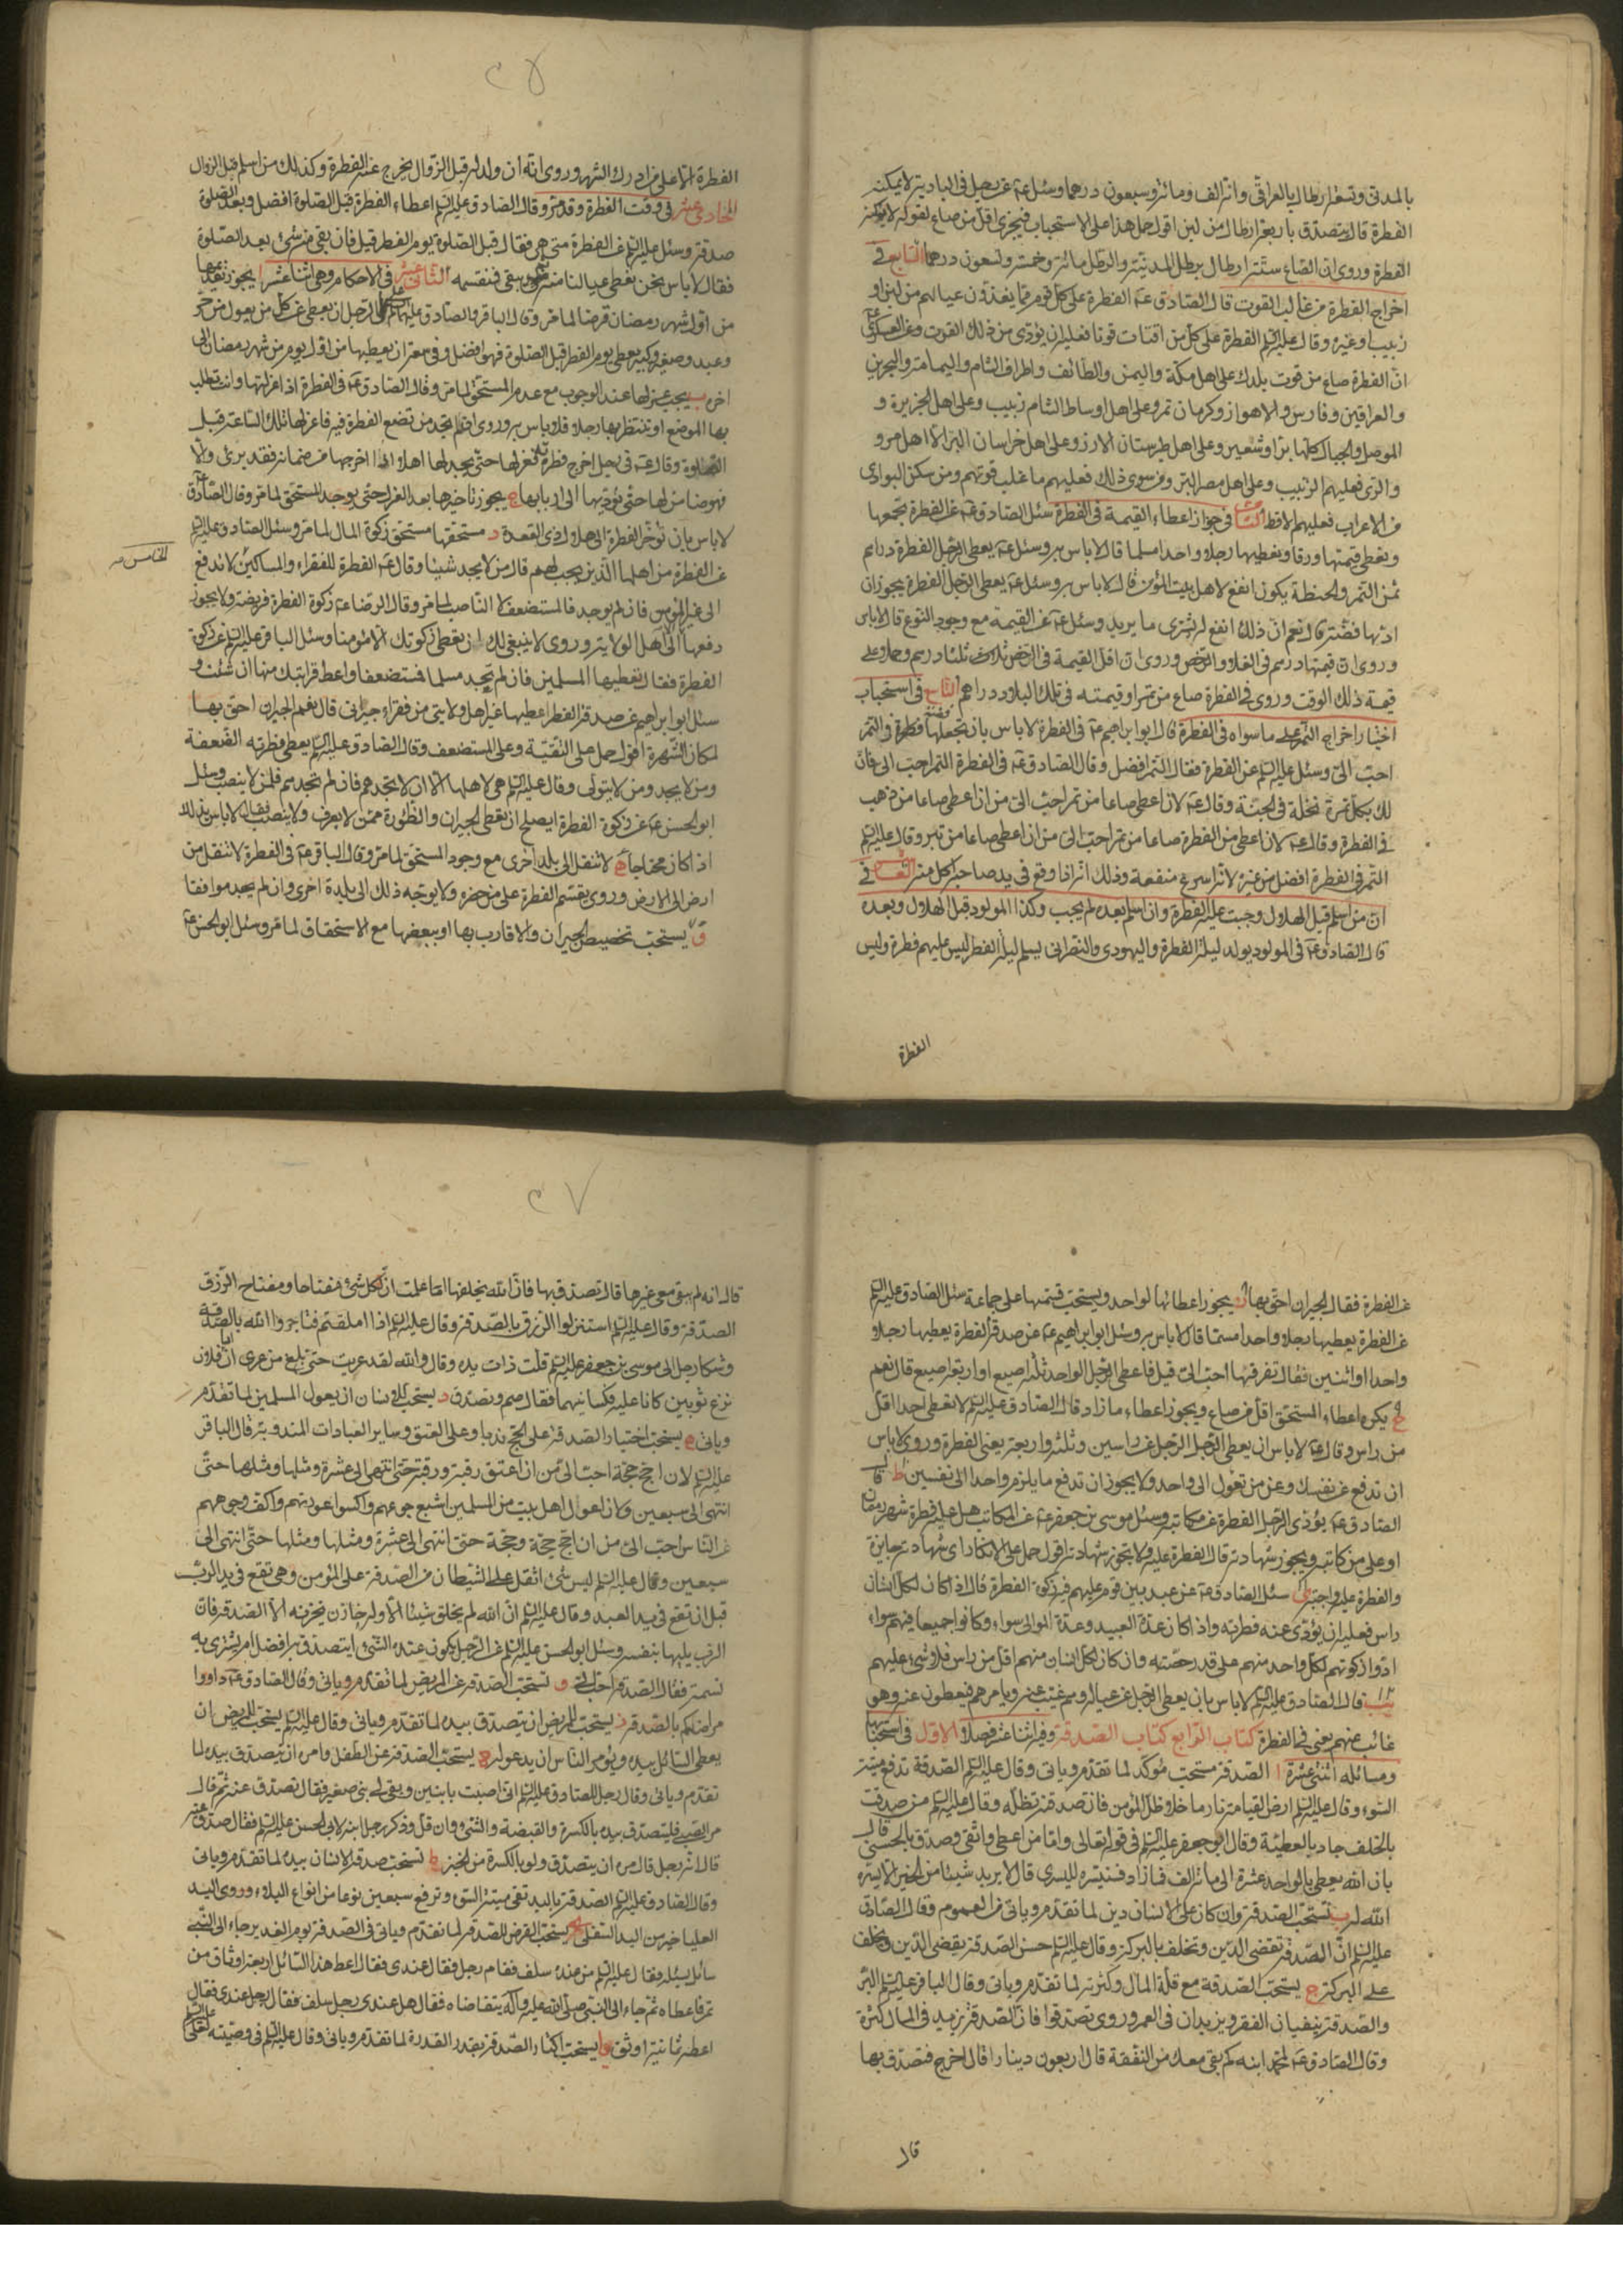 بالمدنى وتسعة ارطال بالعراقى وانه الف ومائة وسبعون درهما وسئل ع عن رجل فى البادية لا يمكنه
الفطرة قال يتصدق باربعة ارطال من لبن اقول حمل هذا على الاستحباب فيجزى اقل من صاع لقوله لا يمكنه
الفطرة وروى ان الصاع ستة ارطال برطل المدينة والرطل مائة وخمسة وتسعون درهما التاسع فى
اخراج الفطرة من غالب القوت قال الصادق ع الفطرة على كل قوم مما يغذون عيالهم من لبن او
زبيب او غيره وقال عليه السلم الفطرة على كل من اقتات قوتا فعليه ان يؤدى من ذلك القوت وعن العسكرى ع
ان الفطرة صاع من قوت بلدك على اهل مكة واليمن والطائف واطراف الشام واليمامة والبحرين
والعراقين وفارس والاهواز وكرمان تمر وعلى اهل اوساط الشام زبيب وعلى اهل الجزيرة و
الموصل والجبال كلها بر او شعير وعلى اهل طبرستان الارز وعلى اهل خراسان البر الا اهل مرو
والرى فعليهم الزبيب وعلى اهل مصر البر ومن سوى ذلك فعليهم ما غلب قوتهم ومن سكن البوادى
من الاعراب فعليهم الاقط فى جواز اعطاء القيمة فى الفطرة سئل الصادق ع عن الفطرة نجمعها
ونعطى قيمتها ورقا ونعطيها رجلا واحدا مسلما قال لا باس به وسئل ع يعطى الرجل الفطرة دراهم
ثمن التمر والحنطة يكون انفع لاهل بيت المؤمن قال لا باس به وسئل ع يعطى الرجل الفطرة يجوز ان
اؤديها فضة قال نعم ان ذلك انفع له يشترى ما يريد وسئل ع عن القيمة مع وجود النوع قال لا باس
وروى ان قيمتها درهم فى الغلاء والرخص وروى ان اقل القيمة فى الرخص ثلثا درهم وحمل على
قيمة ذلك الوقت وروى فى الفطرة صاع من تمر او قيمته فى تلك البلاد دراهم فى استحباب
اختيار اخراج التمر على ما سواه فى الفطرة قال ابو ابراهيم ع فى الفطرة لا باس بان تجعلها فضة والتمر
احب الى وسئل عليه السلم عن الفطرة فقال التمر افضل وقال الصادق ع فى الفطرة التمر احب الى فان
لك بكل تمرة نخلة فى الجنة وقال ع لان اعطى صاعا من تمر احب الى من ان اعطى صاعا من ذهب
فى الفطرة وقال ع لان اعطى من الفطرة صاعا من تمر احب الى من ان اعطى صاعا من تبر وقال عليه السلم
التمر فى الفطرة افضل من غيره لانه اسرع منفعة وذلك انه اذا وقع فى يد صاحبه اكل منه فى
ان من اسلم قبل الهلال وجبت عليه الفطرة وان اسلم بعده لم يجب وكذا المولود قبل الهلال وبعده
قال الصادق ع فى المولود يولد ليلة الفطرة واليهودى والنصرانى يسلم ليلة الفطر ليس عليهم فطرة وليس
الفطرة
الفطرة الا على من ادرك الشهر وروى انه ان ولد له قبل الزوال يخرج عنه الفطرة وكذلك من اسلم قبل الزوال
الحادى عشر فى وقت الفطرة وقد مر وقال الصادق عليه السلم اعطاء الفطرة قبل الصلوة افضل وبعد الصلوة
صدقة وسئل عليه السلم عن الفطرة متى هى فقال قبل الصلوة يوم الفطر قيل فان بقى منه شئ بعد الصلوة
فقال لا باس نحن نعطى عيالنا منه ثم يبقى فنقسمه الثانى عشر فى الاحكام وهى اثنا عشر ا يجوز تقديمها
من اول شهر رمضان قرضا لما مر وقال الباقر والصادق عليهما السلم على الرجل ان يعطى عن كل من يعول من حر
وعبد وصغير وكبير يعطى يوم الفطر قبل الصلوة فهو افضل وفى سعة ان يعطيها من اول يوم من شهر رمضان الى
اخره ب يجب عزلها عند الوجوب مع عدم المستحق لما مر وقال الصادق ع فى الفطرة اذا عزلتها وانت تطلب
بها الموضع او تنتظر بها رجلا فلا باس به وروى ان لم تجد من تضع الفطرة فيه فاعزلها تلك الساعة قبل
الصلوة وقال ع فى رجل اخرج فطرته فعزلها حتى يجد لها اهلا اذا اخرجها من ضمانه فقد برئ والا
فهو ضامن لها حتى يؤديها الى اربابها ج يجوز تاخيرها بعد العزل حتى يوجد المستحق لما مر وقال الصادق
لا باس بان تؤخر الفطرة الى هلال ذى القعدة د مستحقها مستحق زكوة المال لما مر وسئل الصادق عليه السلم
عن الفطرة من اهلها الذين يجب لهم قال من لا يجد شيئا وقال ع الفطرة للفقراء والمساكين لا تدفع
الى غير المؤمن فان لم يوجد فالمستضعف لا الناصب لما مر وقال الرضا ع زكوة الفطرة فريضة ولا يجوز
دفعها الا الى اهل الولاية وروى لا ينبغى لك ان تعطى زكوتك الا مؤمنا وسئل الباقر عليه السلم عن زكوة
الفطرة فقال تعطيها المسلمين فان لم تجد مسلما فمستضعفا واعط قرابتك منها ان شئت و
سئل ابو ابراهيم عن صدقة الفطر اعطيها غير اهل ولايتى من فقراء جيرانى قال نعم الجيران احق بها
لمكان الشهرة اقول حمل على التقية وعلى المستضعف وقال الصادق عليه السلم يعطى فطرته الضعفة
ومن لا يجد ومن لا يتولى وقال عليه السلم هى لاهلها الا ان لا تجدهم فان لم تجدهم فلمن لا ينصب وسئل
ابو الحسن ع عن زكوة الفطرة ايصلح ان تعطى الجيران والظؤرة ممن لا يعرف ولا ينصب فقال لا باس بذلك
اذا كان محتاجا ه لا تنقل الى بلد اخرى مع وجود المستحق لما مر وقال الباقر ع فى الفطرة لا تنقل من
ارض الى الارض وروى يقسم الفطرة على من حضره ولا يوجه ذلك الى بلدة اخرى وان لم يجد موافقا
و يستحب تخصيص الجيران والاقارب بها او ببعضها مع الاستحقاق لما مر وسئل ابو الحسن ع
عن الفطرة فقال الجيران احق بها ز يجوز اعطائها لواحد ويستحب قسمتها على جماعة سئل الصادق عليه السلم
عن الفطرة يعطيها رجلا واحدا مسلما قال لا باس به وسئل ابو ابراهيم ع عن صدقة الفطرة يعطيها رجلا
واحدا او اثنين فقال تفرقتها احب الى قيل فاعطى الرجل الواحد ثلثة اصيع او اربعة اصيع قال نعم
ح يكره اعطاء المستحق اقل من صاع ويجوز اعطاء ما زاد قال الصادق عليه السلم لا تعطى احدا اقل
من راس وقال ع لا باس ان يعطى الرجل الرجل عن راسين وثلثة واربعة يعنى الفطرة وروى لا باس
ان تدفع عن نفسك وعن من تعول الى واحد ولا يجوز ان تدفع ما يلزم واحدا الى نفسين ط قال
الصادق ع يؤدى الرجل الفطرة عن مكاتبه وسئل موسى بن جعفر ع عن المكاتب هل عليه فطرة شهر رمضان
او على من كاتبه ويجوز شهادته قال الفطرة عليه ولا تجوز شهادته اقول حمل على الانكار اى شهادته جايزة
والفطرة عليه واجبة ى سئل الصادق ع عن عبد بين قوم عليهم فيه زكوة الفطرة قال اذا كان لكل انسان
راس فعليه ان يؤدى عنه فطرته واذا كان عدة العبيد وعدة الموالى سواء وكانوا جميعا فيهم سواء
ادوا زكوتهم لكل واحد منهم على قدر حصته وان كان لكل انسان منهم اقل من راس فلا شئ عليهم
قال الصادق عليه السلم لا باس بان يعطى الرجل عن عياله وهم غيب عنه ويامرهم فيعطون عنه وهو
غائب عنهم يعنى فى الفطرة كتاب الرابع كتاب الصدقة وفيه اثنا عشر فصلا الاول فى استحبابها
ومسائله اثنى عشرة ا الصدقة مستحب مؤكد لما تقدم وياتى وقال عليه السلم الصدقة تدفع ميتة
السوء وقال عليه السلم ارض القيامة نار ما خلا ظل المؤمن فان صدقته تظله وقال عليه السلم من صدقت
بالخلف جاد بالعطية وقال ابو جعفر عليه السلم فى قوله تعالى واما من اعطى واتقى وصدق بالحسنى قال
بان الله يعطى بالواحد عشرة الى مائة الف فما زاد فسنيسره لليسرى قال لا يريد شيئا من الخير الا يسره
الله له ب تستحب الصدقة وان كان على الانسان دين لما تقدم وياتى من العموم وقال الصادق
عليه السلم ان الصدقة تقضى الدين وتخلف بالبركة وقال عليه السلم حسن الصدقة يقضى الدين ويخلف
على البركة ج يستحب الصدقة مع قلة المال وكثرته لما تقدم وياتى وقال الباقر عليه السلم البر
والصدقة ينفيان الفقر ويزيدان فى العمر وروى تصدقوا فان الصدقة تزيد فى المال كثرة
وقال الصادق ع لمحمد ابنه كم بقى معك من النفقة قال اربعون دينارا قال اخرج فتصدق بها
قال
قال انه لم يبق معى غيرها قال تصدق بها فان الله يخلفها اما علمت ان لكل شئ مفتاحا ومفتاح الرزق
الصدقة وقال عليه السلم استنزلوا الرزق بالصدقة وقال عليه السلم اذا املقتم فتاجروا الله بالصدقة
وشكا رجل الى موسى بن جعفر عليه السلم قلت ذات يده وقال والله لقد عريت حتى بلغ من عرى ان ابا فلان
نزع ثوبين كانا عليه فكسانيهما فقال صم وتصدق د يستحب للانسان ان يعول المسلمين لما تقدم
وياتى ه يستحب اختيار الصدقة على الحج ندبا وعلى العتق وساير العبادات المندوبة قال الباقر
عليه السلم لان احج حجة احب الى من ان اعتق رقبة ورقبة حتى انتهى الى عشرة ومثلها ومثلها حتى
انتهى الى سبعين ولان اعول اهل بيت من المسلمين اشبع جوعهم واكسو عورتهم واكف وجوههم
عن الناس احب الى من ان احج حجة وحجة حتى انتهى الى عشرة ومثلها ومثلها حتى انتهى الى
سبعين وقال عليه السلم ليس شئ اثقل على الشيطان من الصدقة على المؤمن وهى تقع فى يد الرب
قبل ان تقع فى يد العبد وقال عليه السلم ان الله لم يخلق شيئا الا وله خازن يخزنه الا الصدقة فان
الرب يليها بنفسه وسئل ابو الحسن عليه السلم عن الرجل يكون عنده الشئ ايتصدق به افضل ام يشترى به
نسمة فقال الصدقة احب الى و تستحب الصدقة عن المريض لما تقدم وياتى وقال الصادق ع داووا
مرضاكم بالصدقة ز يستحب للمريض ان يتصدق بيده لما تقدم وياتى وقال عليه السلم يستحب للمريض ان
يعطى السائل بيده ويؤمر السائل ان يدعو له ح يستحب الصدقة عن الطفل وامره ان يتصدق بيده لما
تقدم وياتى وقال رجل للصادق عليه السلم انى اصبت بابنين وبقى لى بنى صغير فقال تصدق عنه ثم قال
مر الصبى فليتصدق بيده بالكسرة والقبضة والشئ وان قل وذكر رجل ابنه لابى الحسن عليه السلم فقال صدق عنه
قال انه رجل قال مره ان يتصدق ولو بالكسرة من الخبز ط تستحب صدقة الانسان بيده لما تقدم وياتى
وقال الصادق عليه السلم الصدقة باليد تقى ميتة السوء وترفع سبعين نوعا من انواع البلاء وروى اليد
العليا خير من اليد السفلى ى يستحب القرض للصدقة لما تقدم وياتى فى الصدقة يوم الغدير جاء الى النبى
سائل يسئله فقال عليه السلم من عنده سلف فقام رجل فقال عندى فقال اعط هذا السائل اربعة اوساق من
تمر فاعطاه ثم جاء الى النبى صلى الله عليه وآله يتقاضاه فقال هل عندى رجل سلف فقال رجل عندى فقال
اعطه ثمانية اوسق يا يستحب اكثار الصدقة بقدر القدرة لما تقدم وياتى وقال عليه السلم فى وصيته لعلى عليه السلم